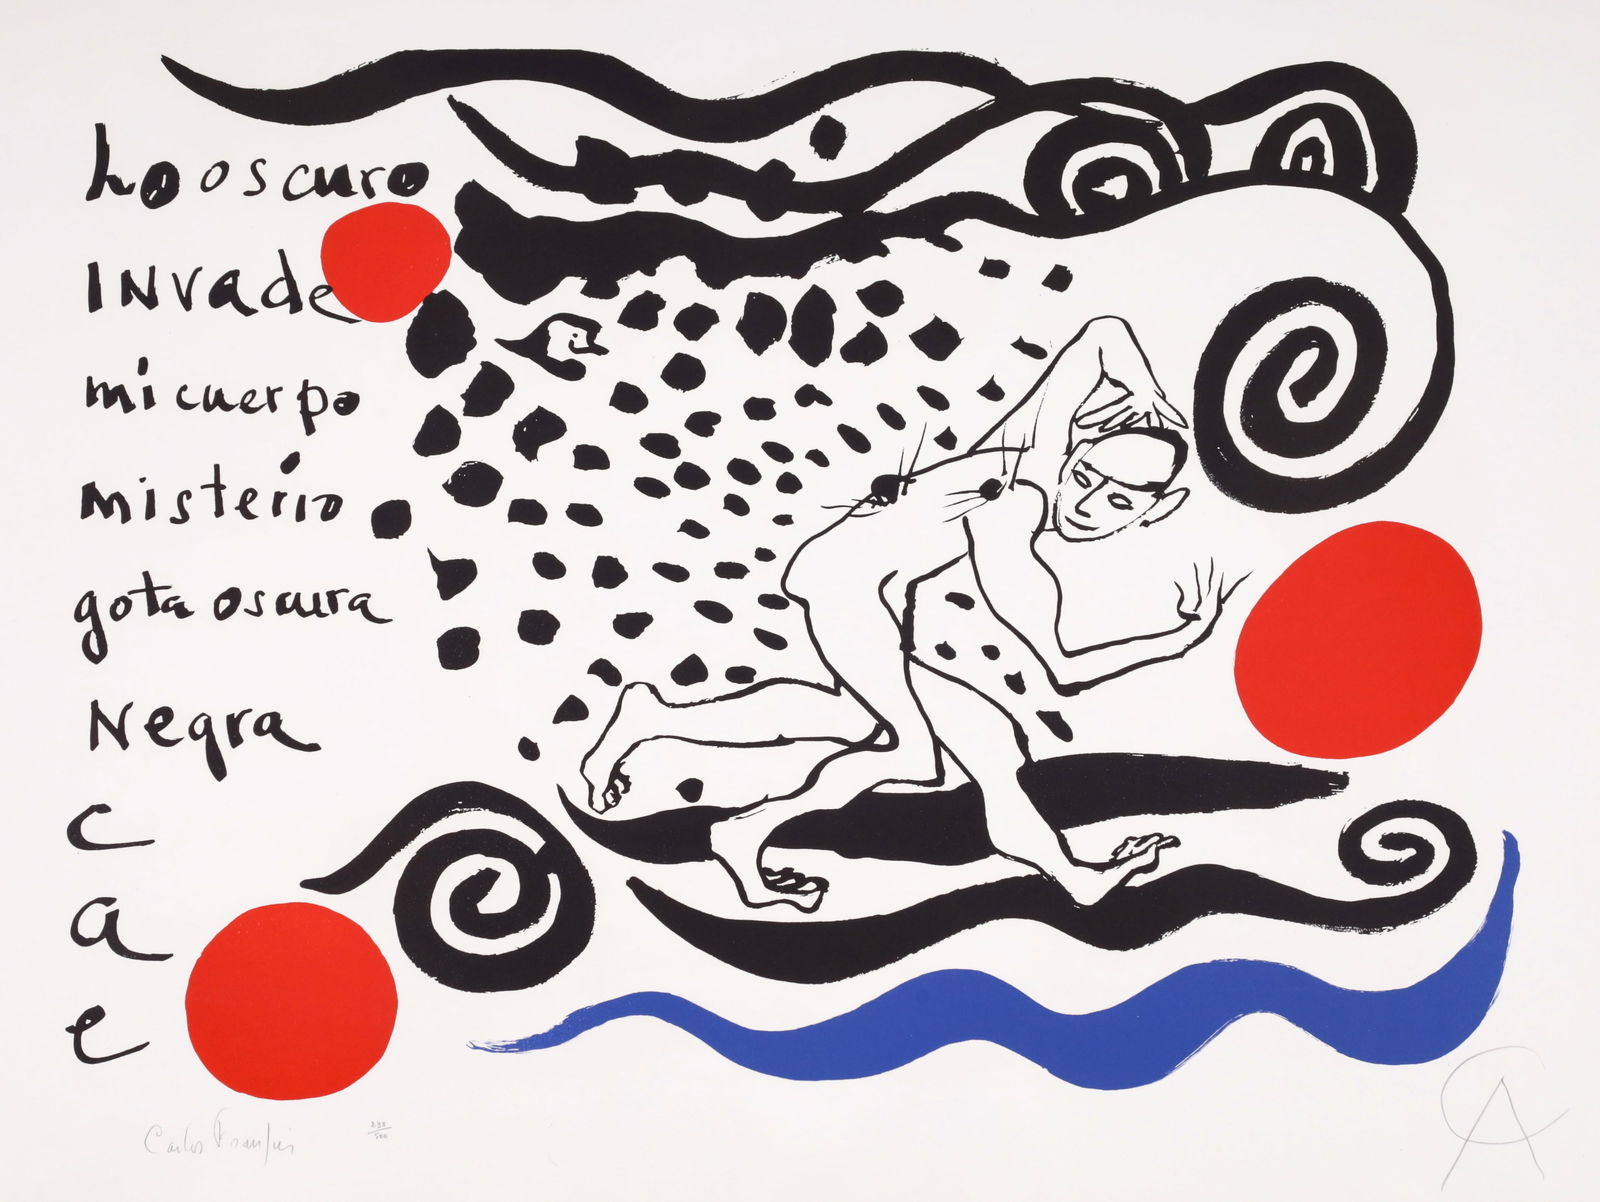 Lo oscuro
INvade
mi cuerpo
misterio
gota oscura
Negra
c
a
e
Carlos Franqui
298/500
CA